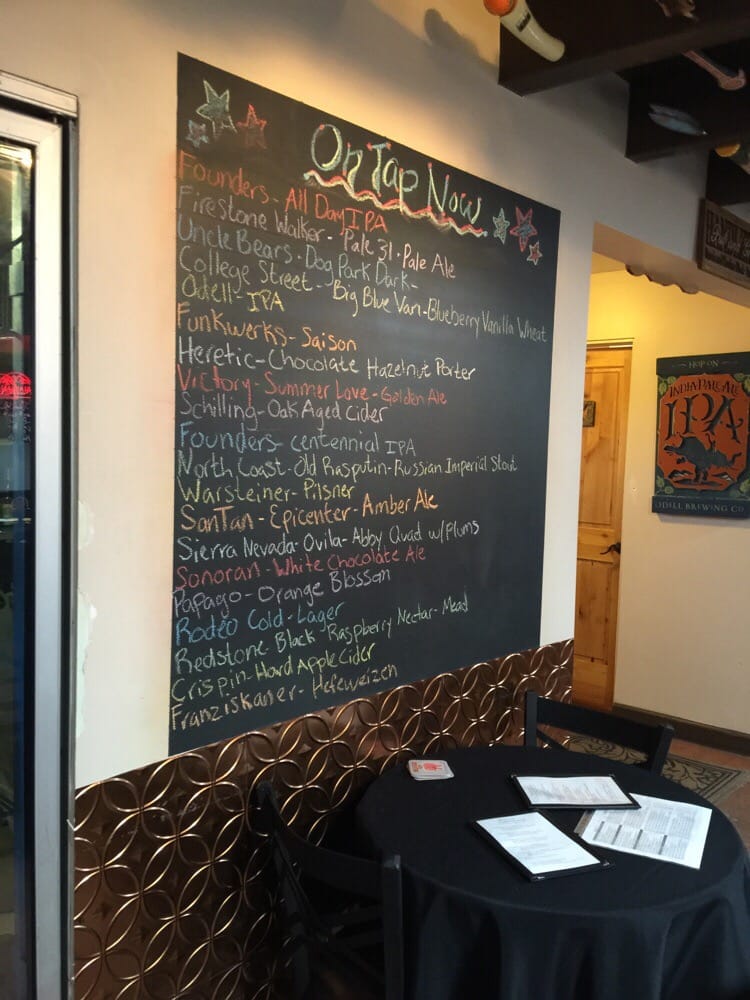 On Tap Now
Founders - All Day IPA
Firestone Walker - Pale 31 - Pale Ale
Uncle Bears - Dog Park Dark -
College Street - Big Blue Van - Blueberry Vanilla Wheat
Odell - IPA
Funkwerks - Saison
Heretic - Chocolate Hazelnut Porter
Victory - Summer Love - Golden Ale
Schilling - Oak Aged Cider
Founders - centennial IPA
North Coast - Old Rasputin - Russian Imperial Stout
Warsteiner - Pilsner
SanTan - Epicenter - Amber Ale
Sierra Nevada - Ovila - Abby Quad w/plums
Sonoran - White Chocolate Ale
Papago - Orange Blossom
Rodeo Cold - Lager
Redstone Black Raspberry Nectar - Mead
Crispin - Hard Apple Cider
Franziskaner - Hefeweizen
HOP ON
INDIA PALE ALE
IPA
ODELL BREWING CO